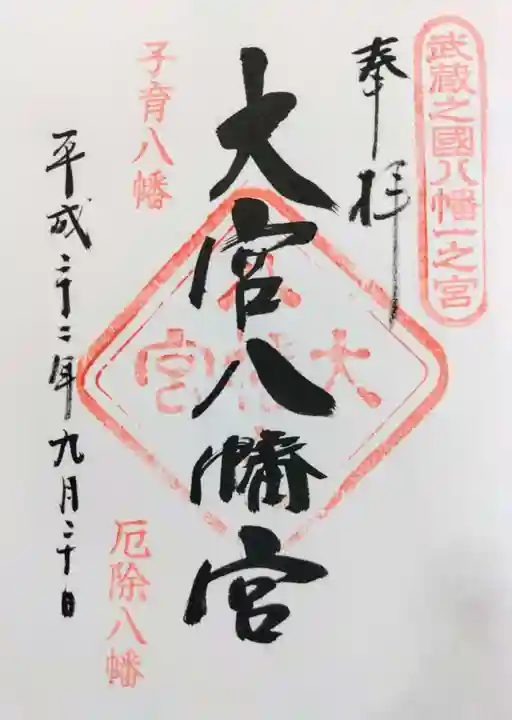 武蔵之國八幡一之宮
奉拝
大宮八幡宮
大宮八幡
子育八幡
厄除八幡
平成二十二年九月二十日